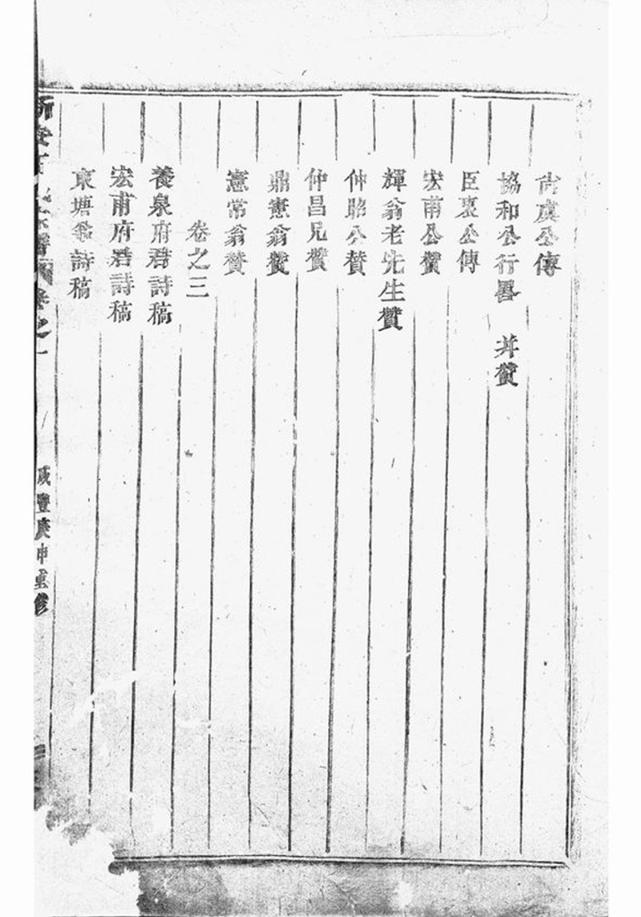 尚虞公傳
協和公行畧 并贊
臣裒公傳
宏甫公贊
輝翁老先生贊
仲昭公贊
仲昌兄贊
鼎憲翁贊
憲常翁贊
卷之三
養泉府君詩稿
宏甫府君詩稿
東塘翁詩稿
新安 氏家譜 卷之一
咸豐庚申重修